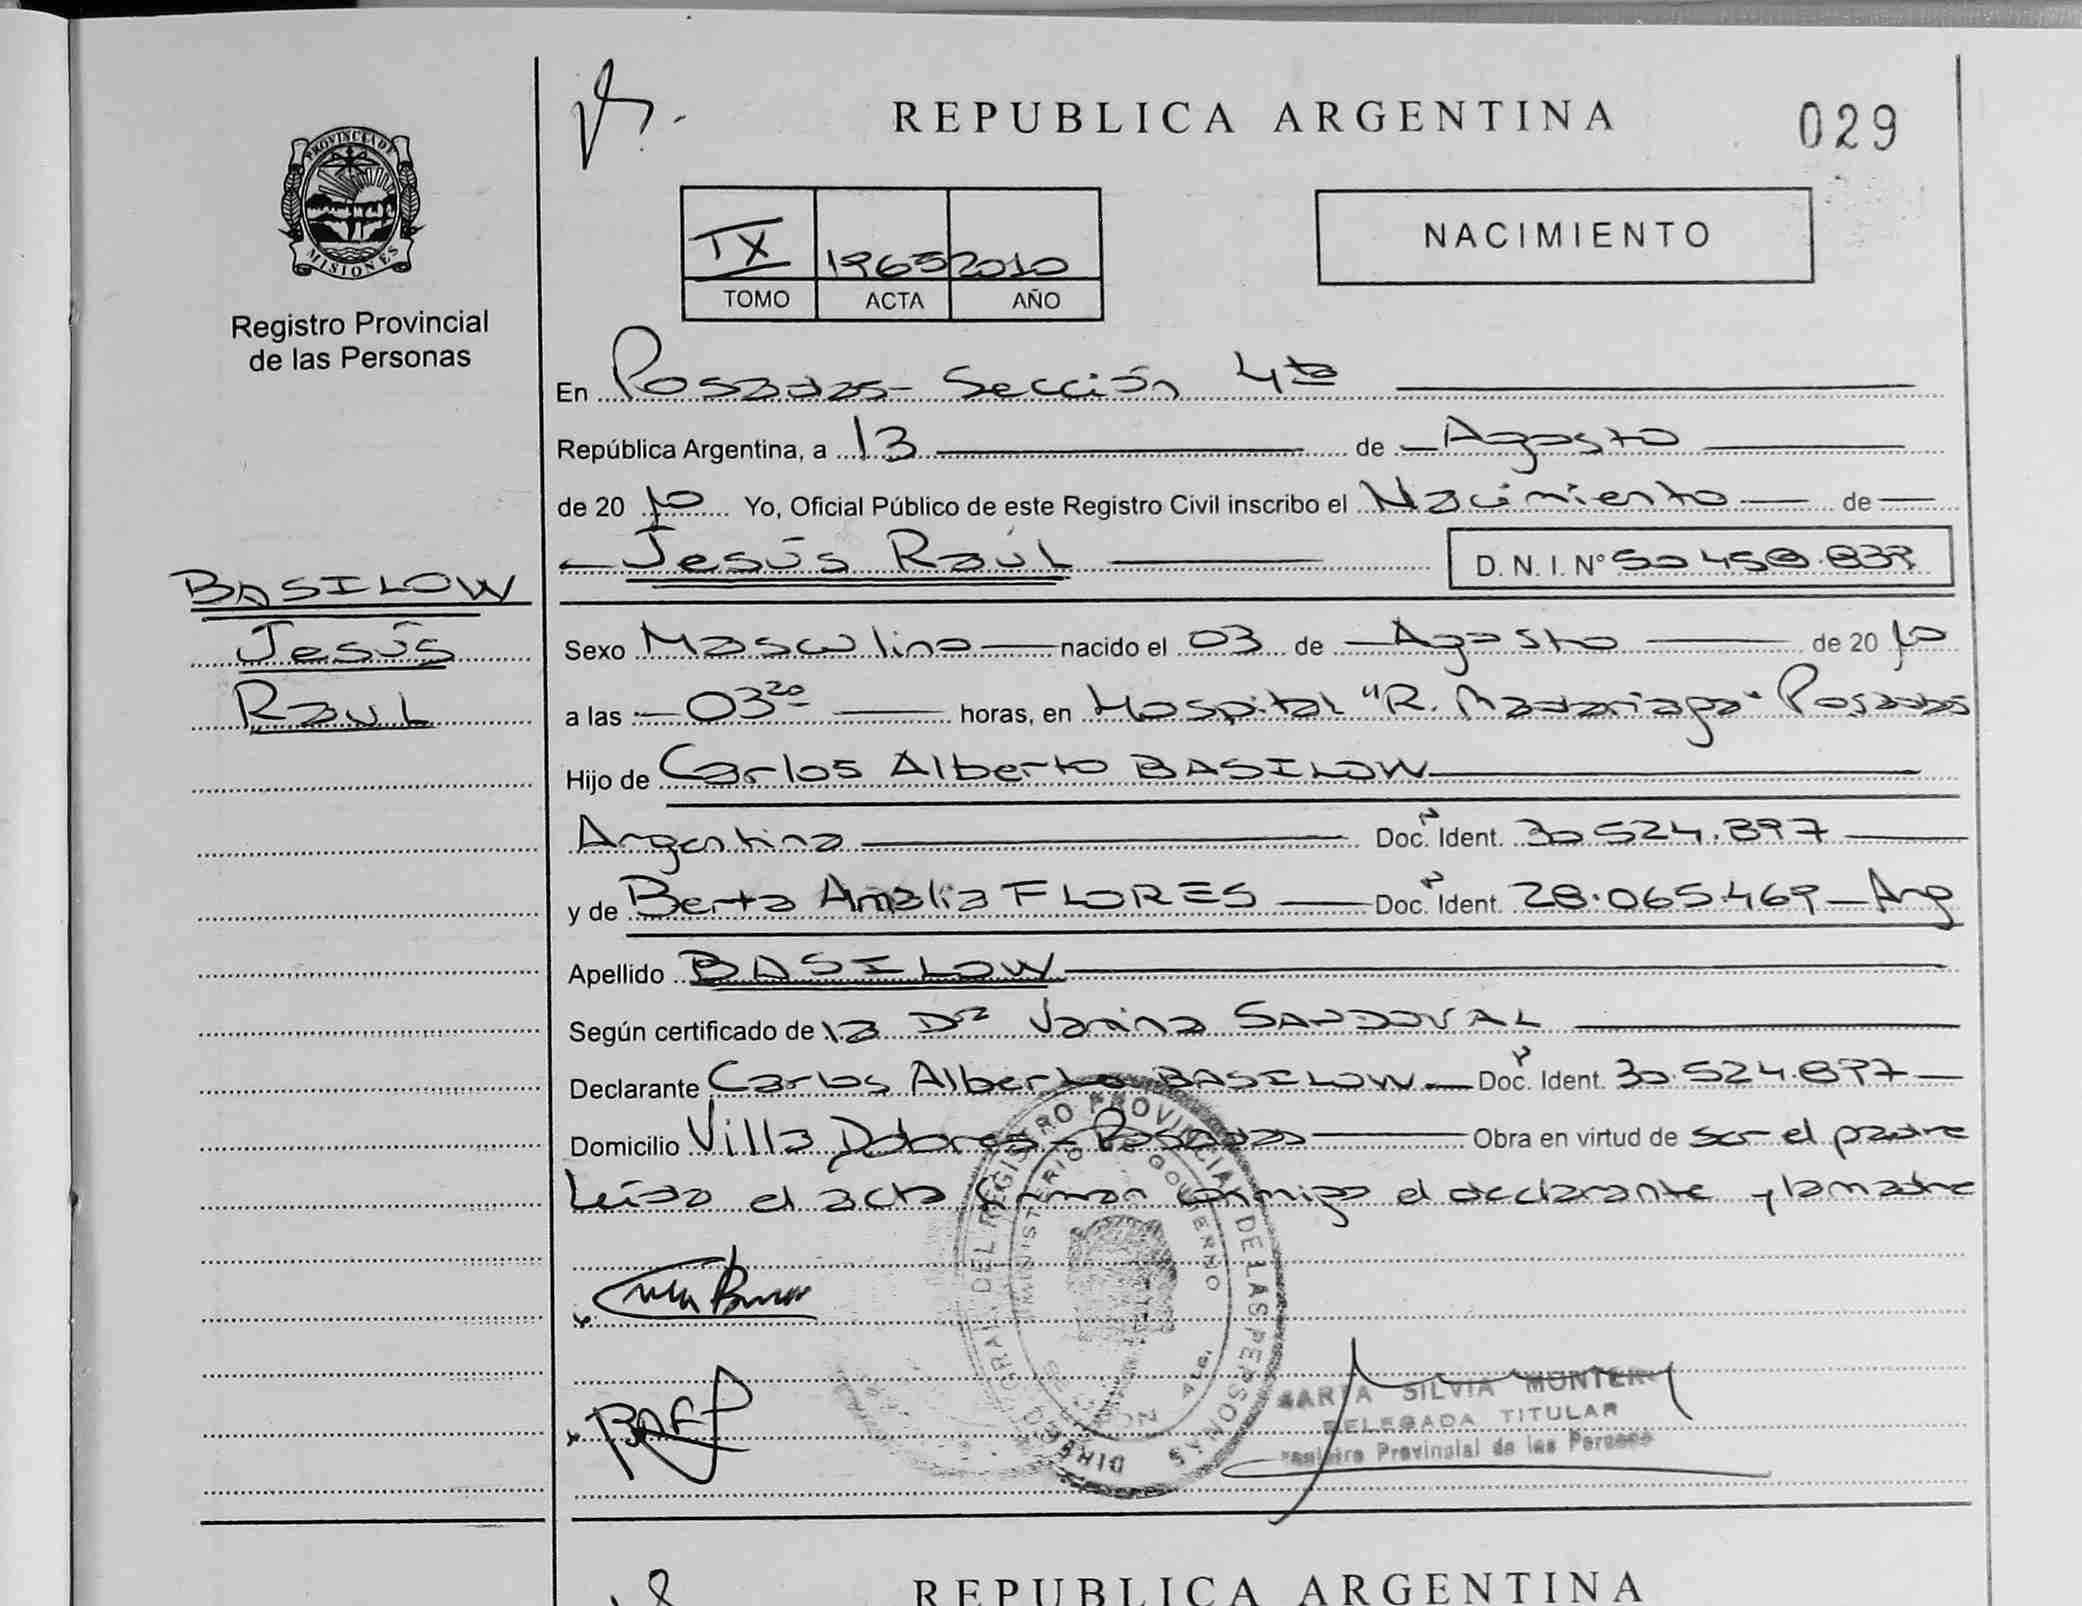 PROVINCIA DE
MISIONES
Registro Provincial
de las Personas
BASILOW
Jesús
Raul
REPUBLICA ARGENTINA
029
IX 1965 2010
TOMO ACTA AÑO
NACIMIENTO
En Posadas - Sección 4ta
República Argentina, a 13 de Agosto
de 2010 Yo, Oficial Público de este Registro Civil inscribo el Nacimiento de
Jesús Raúl D. N. I. Nº
Sexo Masculino nacido el 03 de Agosto de 2010
a las 03 20 horas, en Hospital "R. Madariaga" Posadas
Hijo de Carlos Alberto BASILOW
Argentina Doc. Ident. 30.524.897
y de Berta Amalia FLORES Doc. Ident. 28.065.469 - Arg
Apellido BASILOW
Según certificado de la Dra Yanina SANDOVAL
Declarante Carlos Alberto BASILOW Doc. Ident. 30.524.897
Domicilio Villa Dolores - Posadas Obra en virtud de ser el padre
Leída el acta firman conmigo el declarante y la madre
DIRECC GRAL DEL REGISTRO PROVINCIAL DE LAS PERSONAS
MINISTERIO DE GOBIERNO
MISIONES
SILVIA
DELEGADA TITULAR
Registro Provincial de las Personas
REPUBLICA ARGENTINA